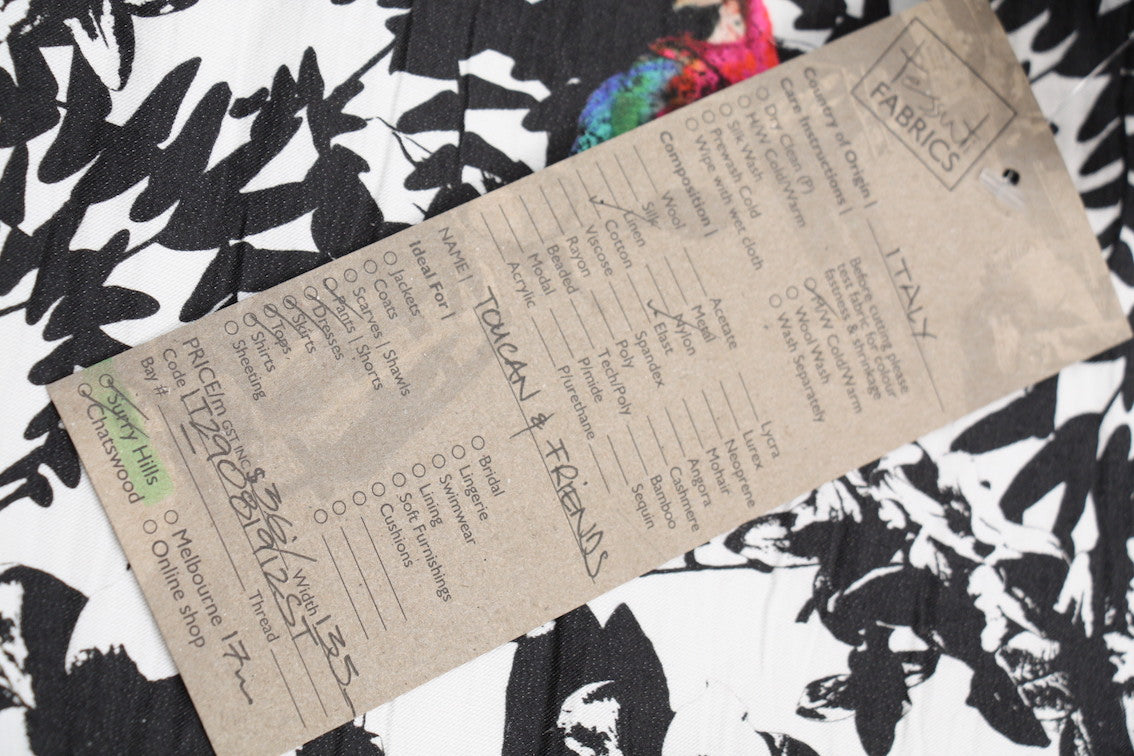 tessuti
FABRICS
Country of Origin | ITALY
Care Instructions |
Dry Clean (P)
H/W Cold/Warm
Silk Wash
Prewash Cold
Wipe with wet cloth
Before cutting please
test fabric for colour
fastness & shrinkage
H/W Cold/Warm
Wool Wash
Wash Separately
Composition |
Wool
Silk
Linen
Cotton
Viscose
Rayon
Beaded
Modal
Acrylic
Acetate
Metal
Nylon
Elast
Spandex
Poly
Tech/Poly
P/mide
P/urethane
Lycra
Lurex
Neoprene
Mohair
Angora
Cashmere
Bamboo
Sequin
NAME | TOUCAN & FRIENDS
Ideal For |
Jackets
Coats
Scarves | Shawls
Pants | Shorts
Dresses
Skirts
Tops
Shirts
Sheeting
Bridal
Lingerie
Swimwear
Lining
Soft Furnishings
Cushions
PRICE/m GST INC Width 135
Code LT290819/2ST
Bay # Thread
Surry Hills
Chatswood
Melbourne 17m
Online shop